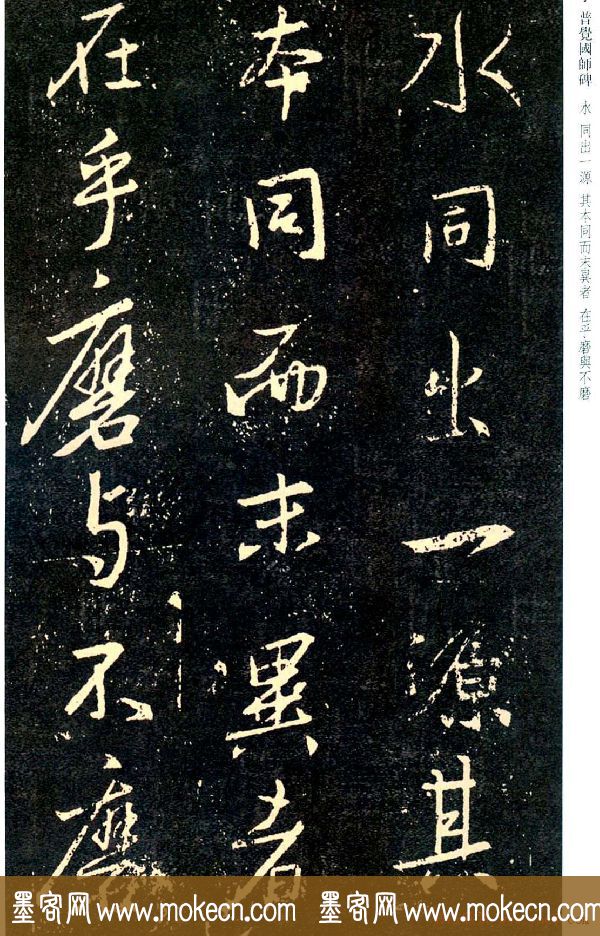 水同出一源其
本同而末異者
在乎磨与不磨
普覺國師碑 水 同出一源 其本同而末異者 在乎磨與不磨
墨客网 www.mokecn.com 墨客网 www.mokecn.com